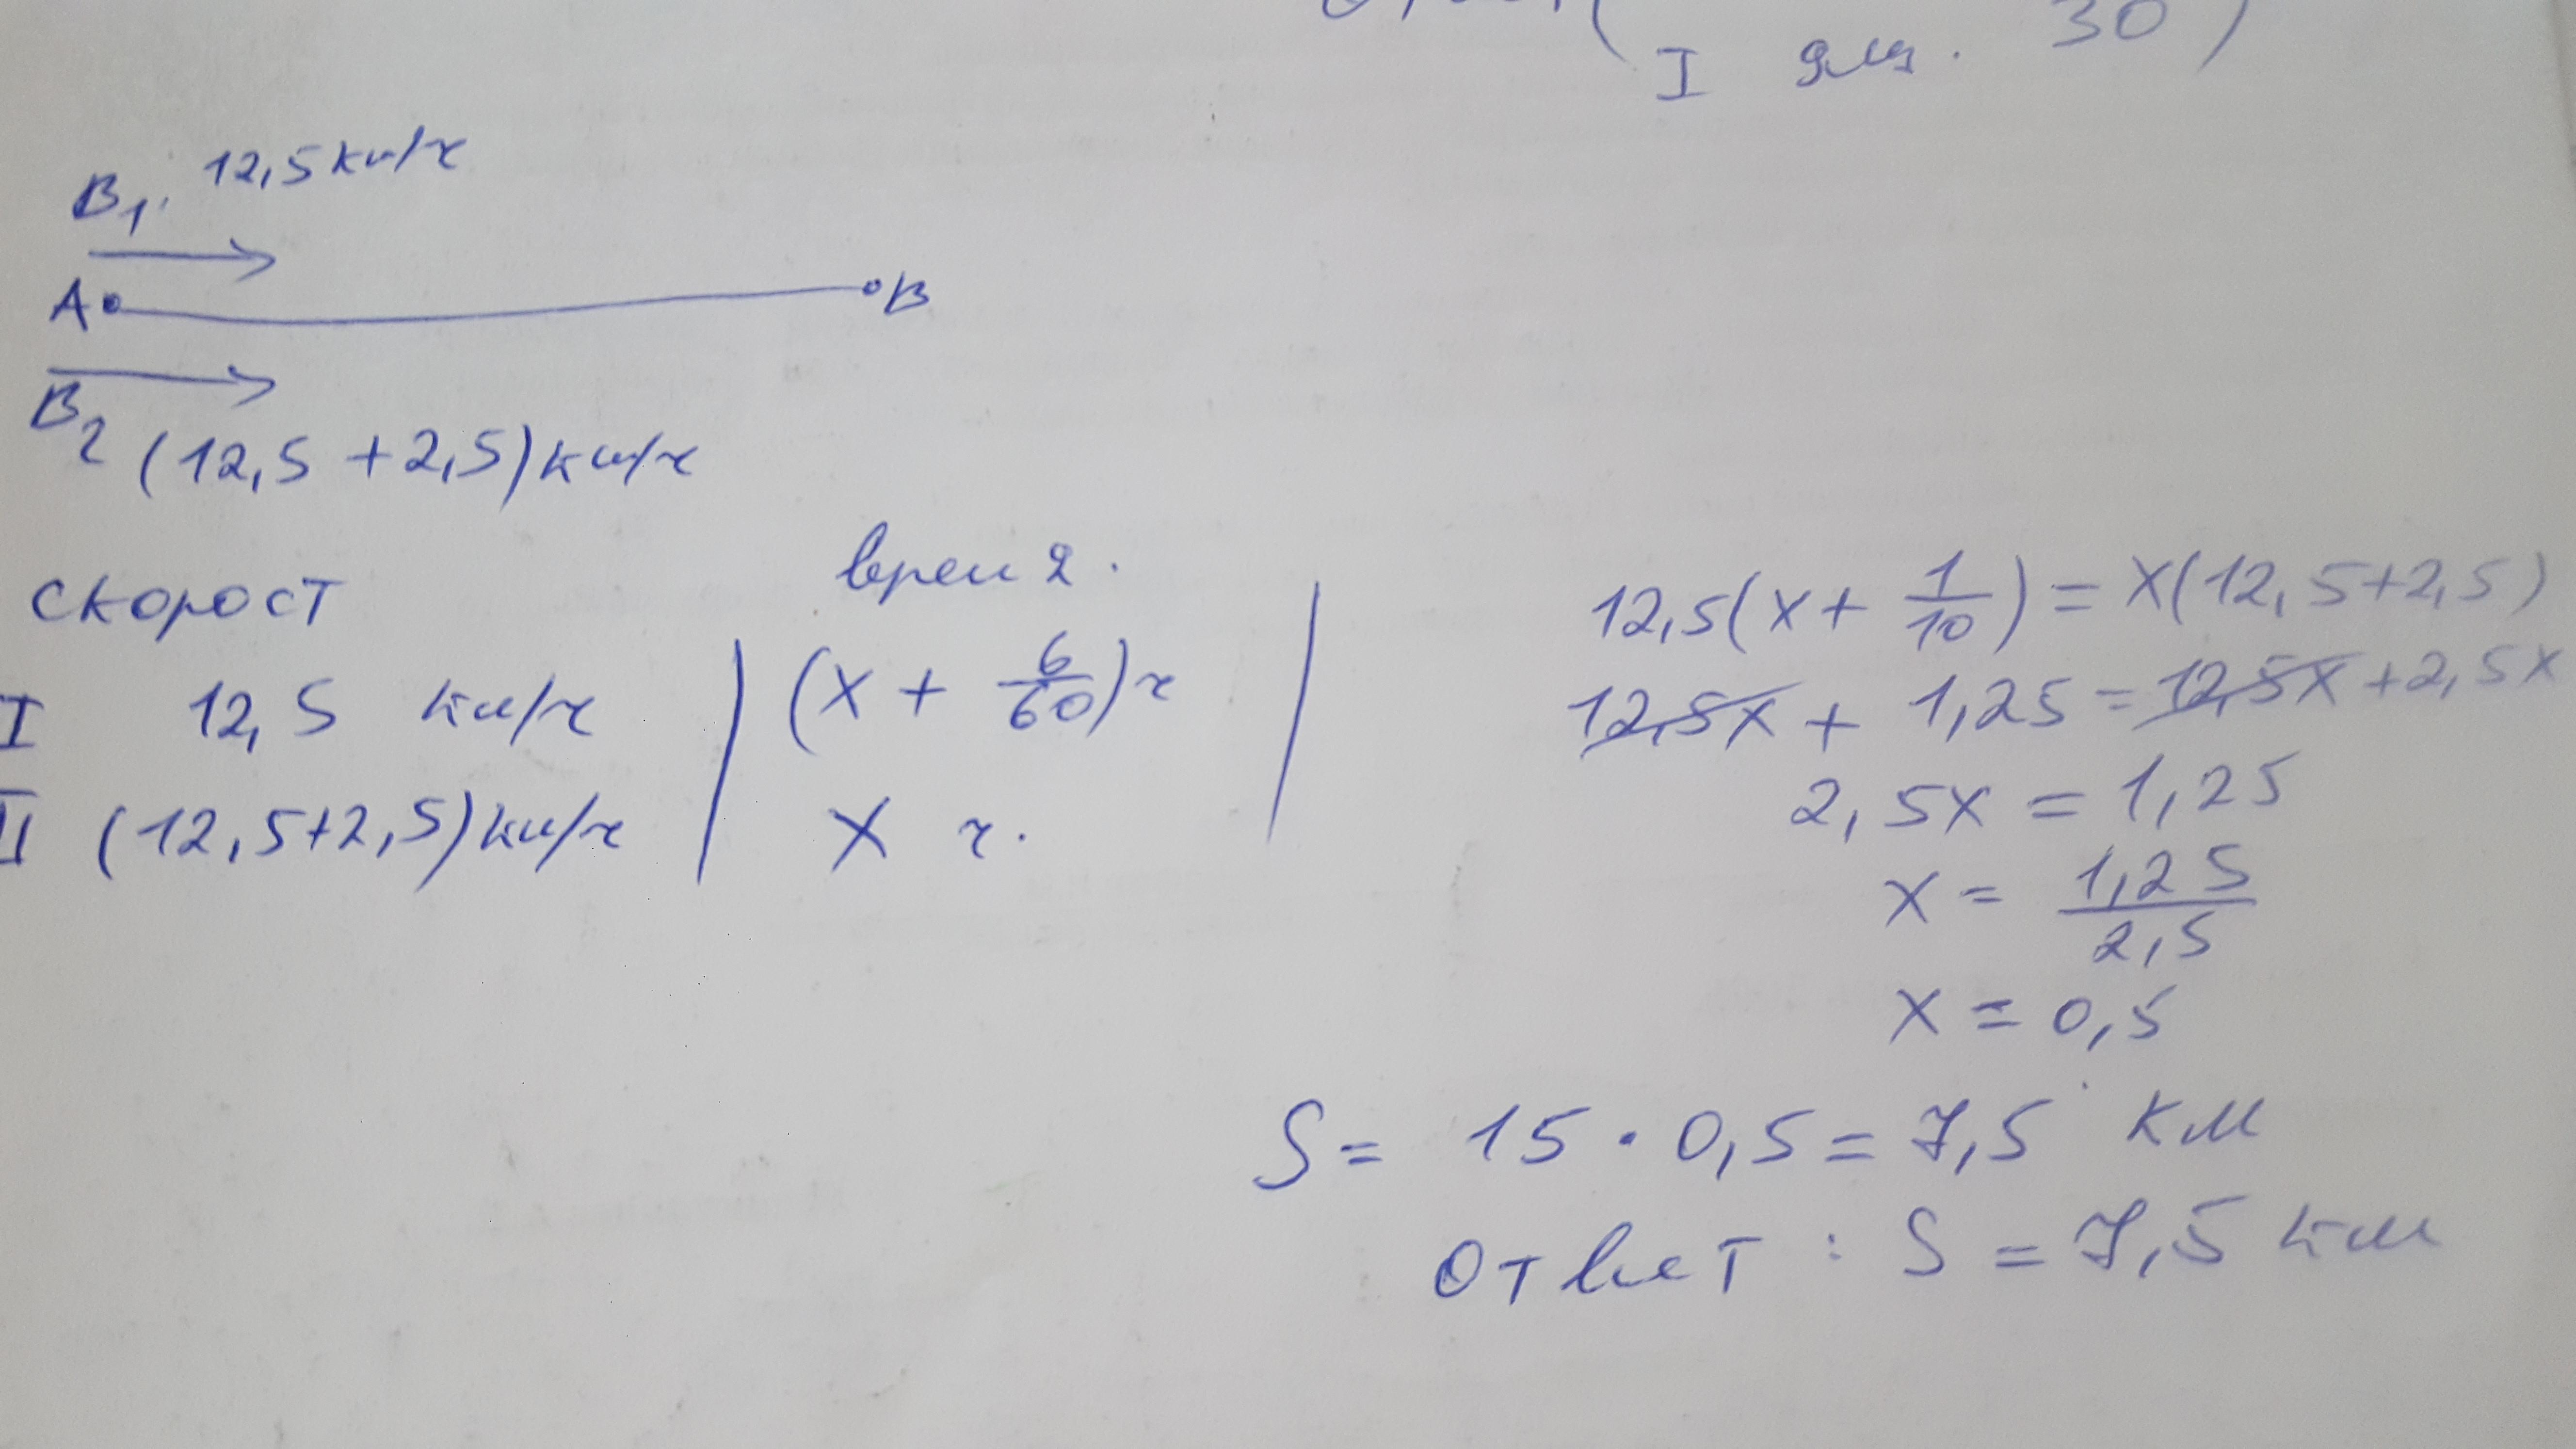 I ящ. 30)
B₁. 12,5 км/ч
A B
B₂ (12,5 + 2,5) км/ч
скорост
I 12,5 км/ч | (x + 6/60) ч |
II (12,5+2,5) км/ч | x ч.
12,5(x + 1/10) = x(12,5+2,5)
12,5x + 1,25 = 12,5x + 2,5x
2,5x = 1,25
x = 1,25/2,5
x = 0,5
S = 15 · 0,5 = 7,5 км
Ответ : S = 7,5 км